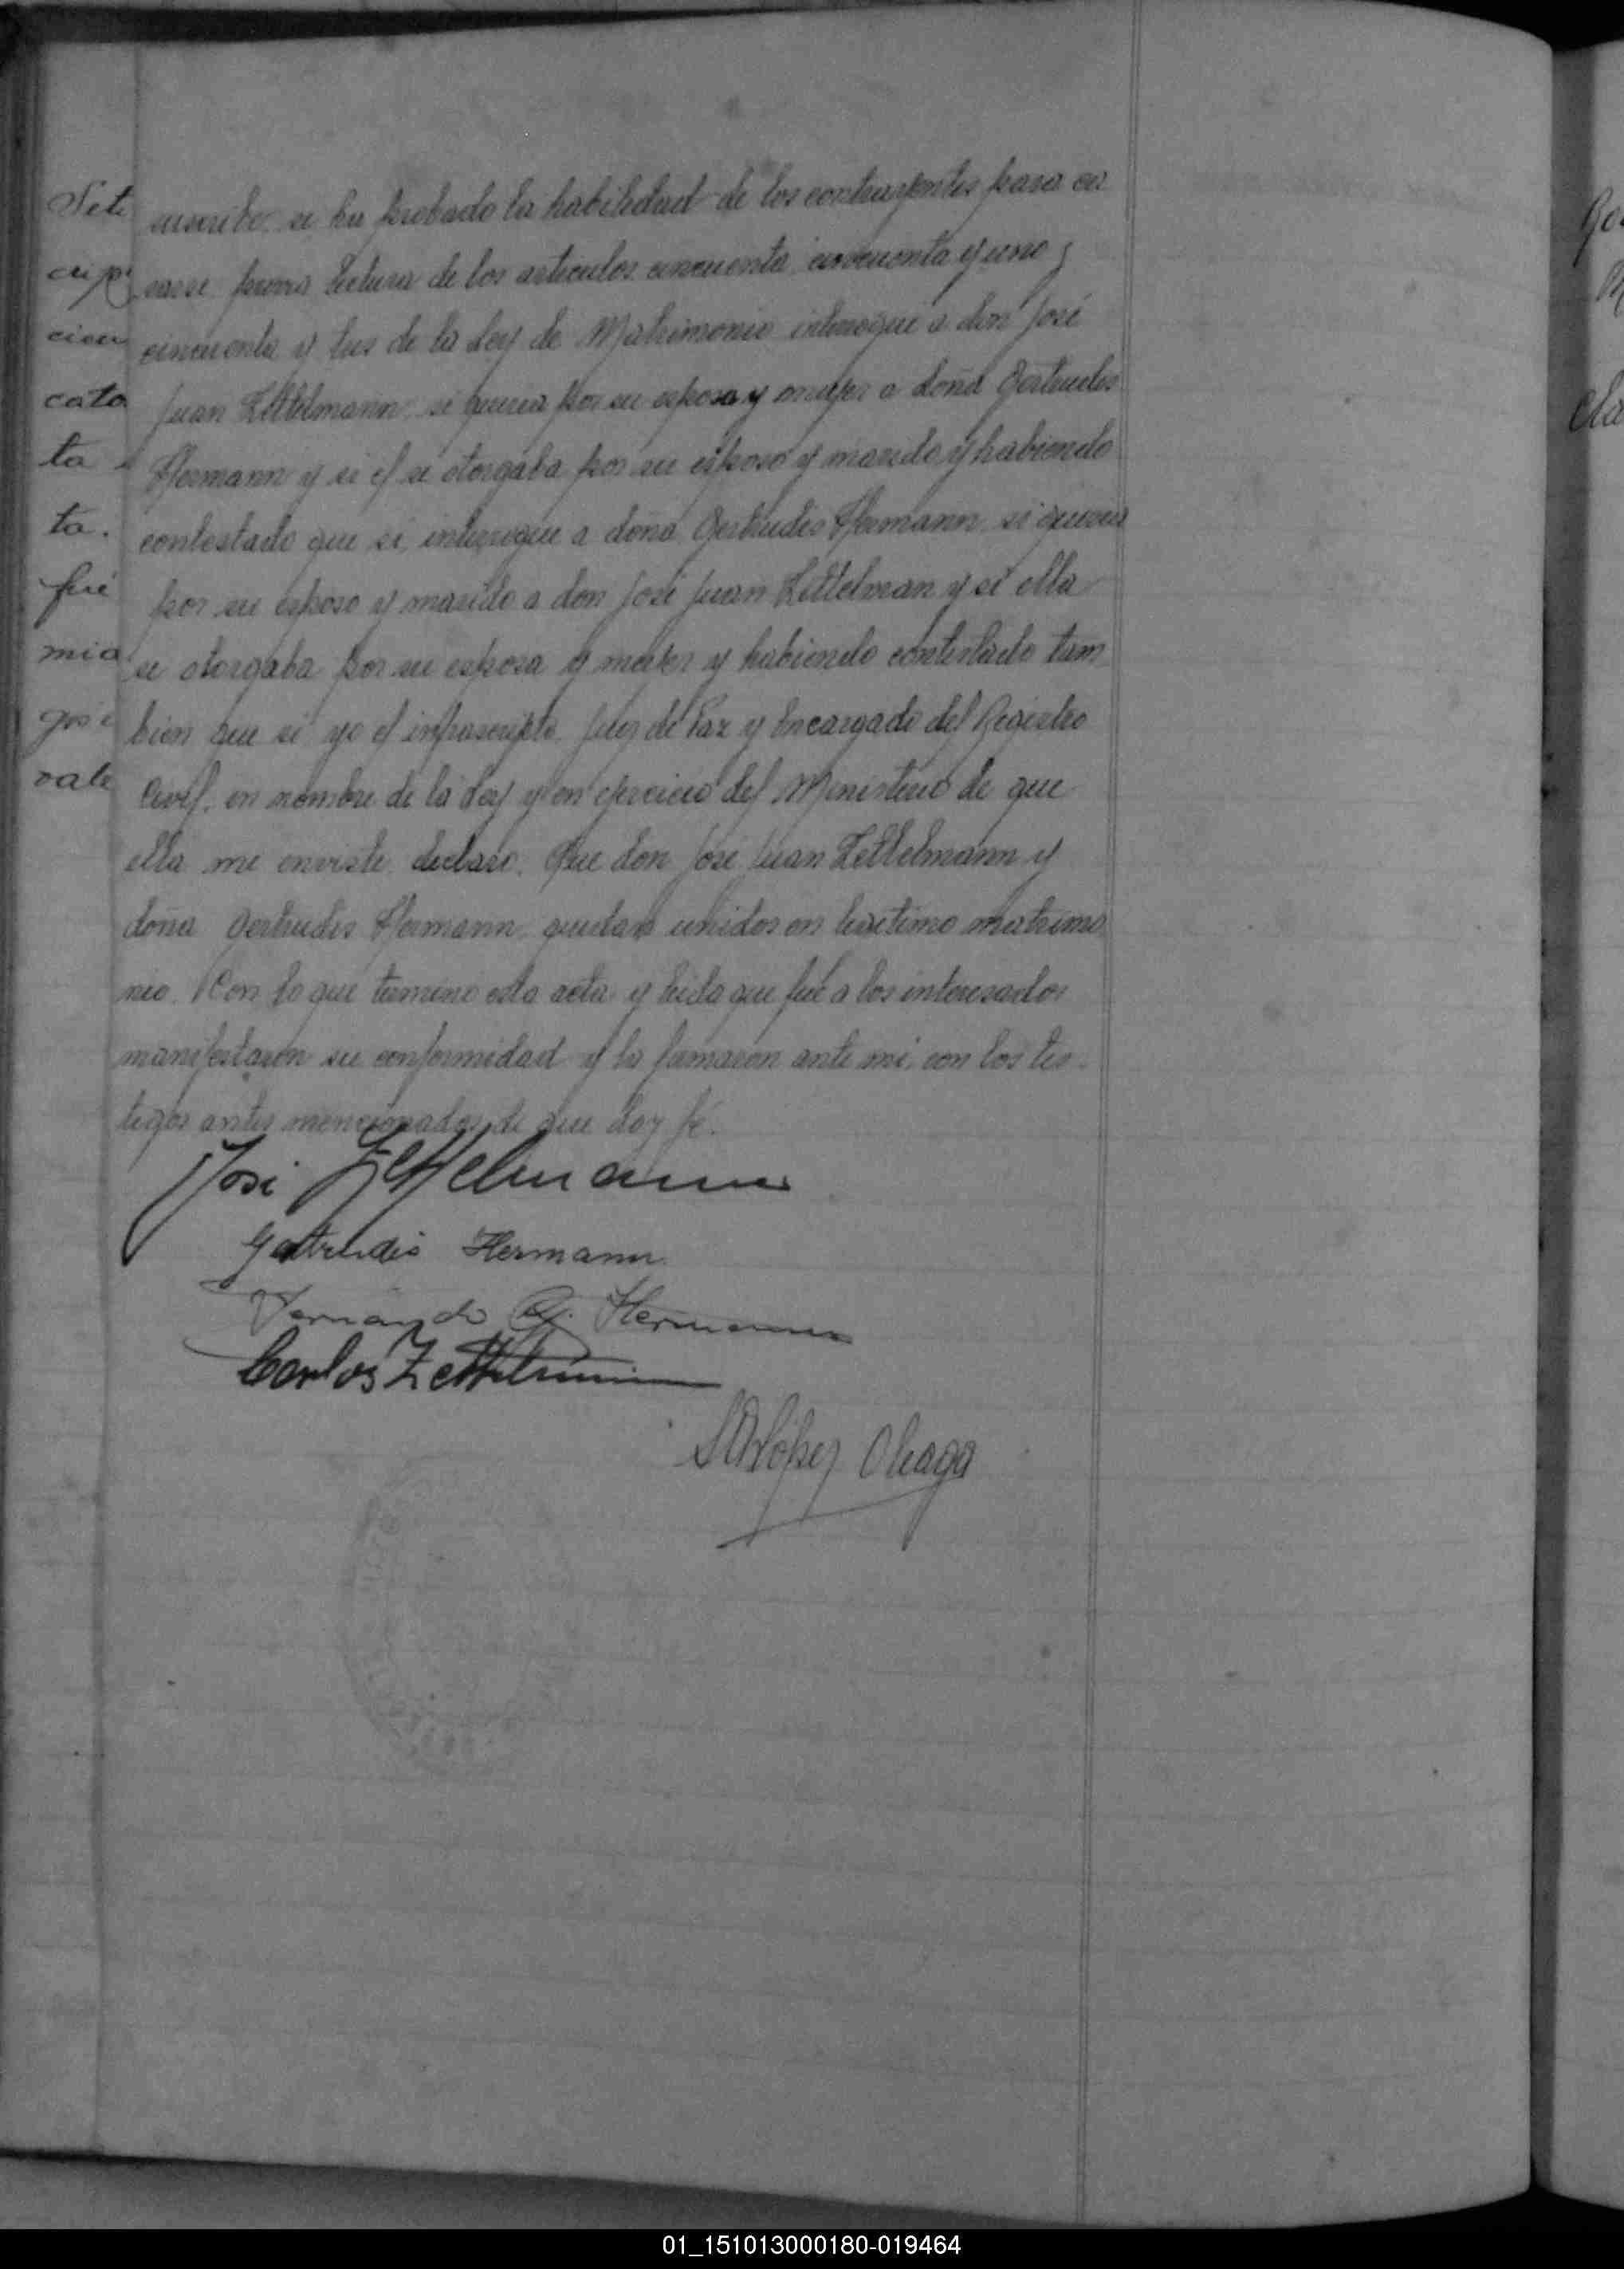 suscribe, se ha probado la habilidad de los contrayentes para ca
sarse previa lectura de los articulos cincuenta, cincuenta y uno y
cincuenta y tres de la Ley de Matrimonio interrogué a don José
Juan Zettelmann, si queria por su esposa y mujer a doña Gertrudes
Hermann y si él se otorgaba por su esposo y marido y habiendo
contestado que si, interrogue a doña Gertrudis Hermann, si queria
por su esposo y marido a don José Juan Zettelman y si ella
se otorgaba por su esposa y mujer y habiendo contestado tam
bien que si yo el infrascripto Juez de Paz y Encargado del Registro
Civil, en nombre de la Ley y en ejercicio del Ministerio de que
ella me enviste declaro. Que don José Juan Zettelmann y
doña Gertrudis Hermann quedan unidos en lexitimo matrimo
nio. Con lo que termino esta acta y leida que fué a los interesados
manifestaron su conformidad y la firmaron ante mi, con los tes-
tigos antes mencionados de que doy fé.
cato
ta
ta.
fué
mia
vale
José Zettelmann
Gertrudis Hermann
Fernando Hermann
Carlos Zettelmann
López Oleaga
01_151013000180-019464